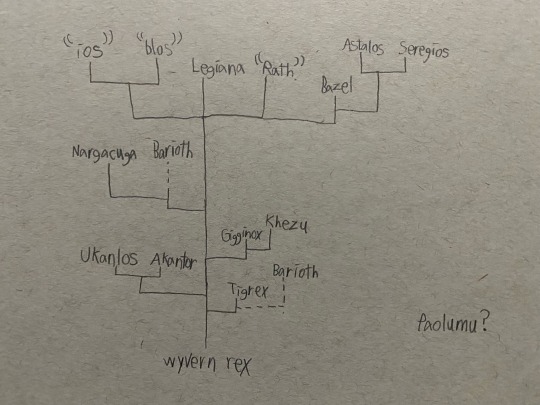 "ios"
"blos"
Legiana
"Rath"
Astalos
Seregios
Bazel
Nargacuga
Barioth
Gigginox
Khezu
Ukanlos
Akantor
Barioth
Tigrex
Paolumu?
wyvern rex